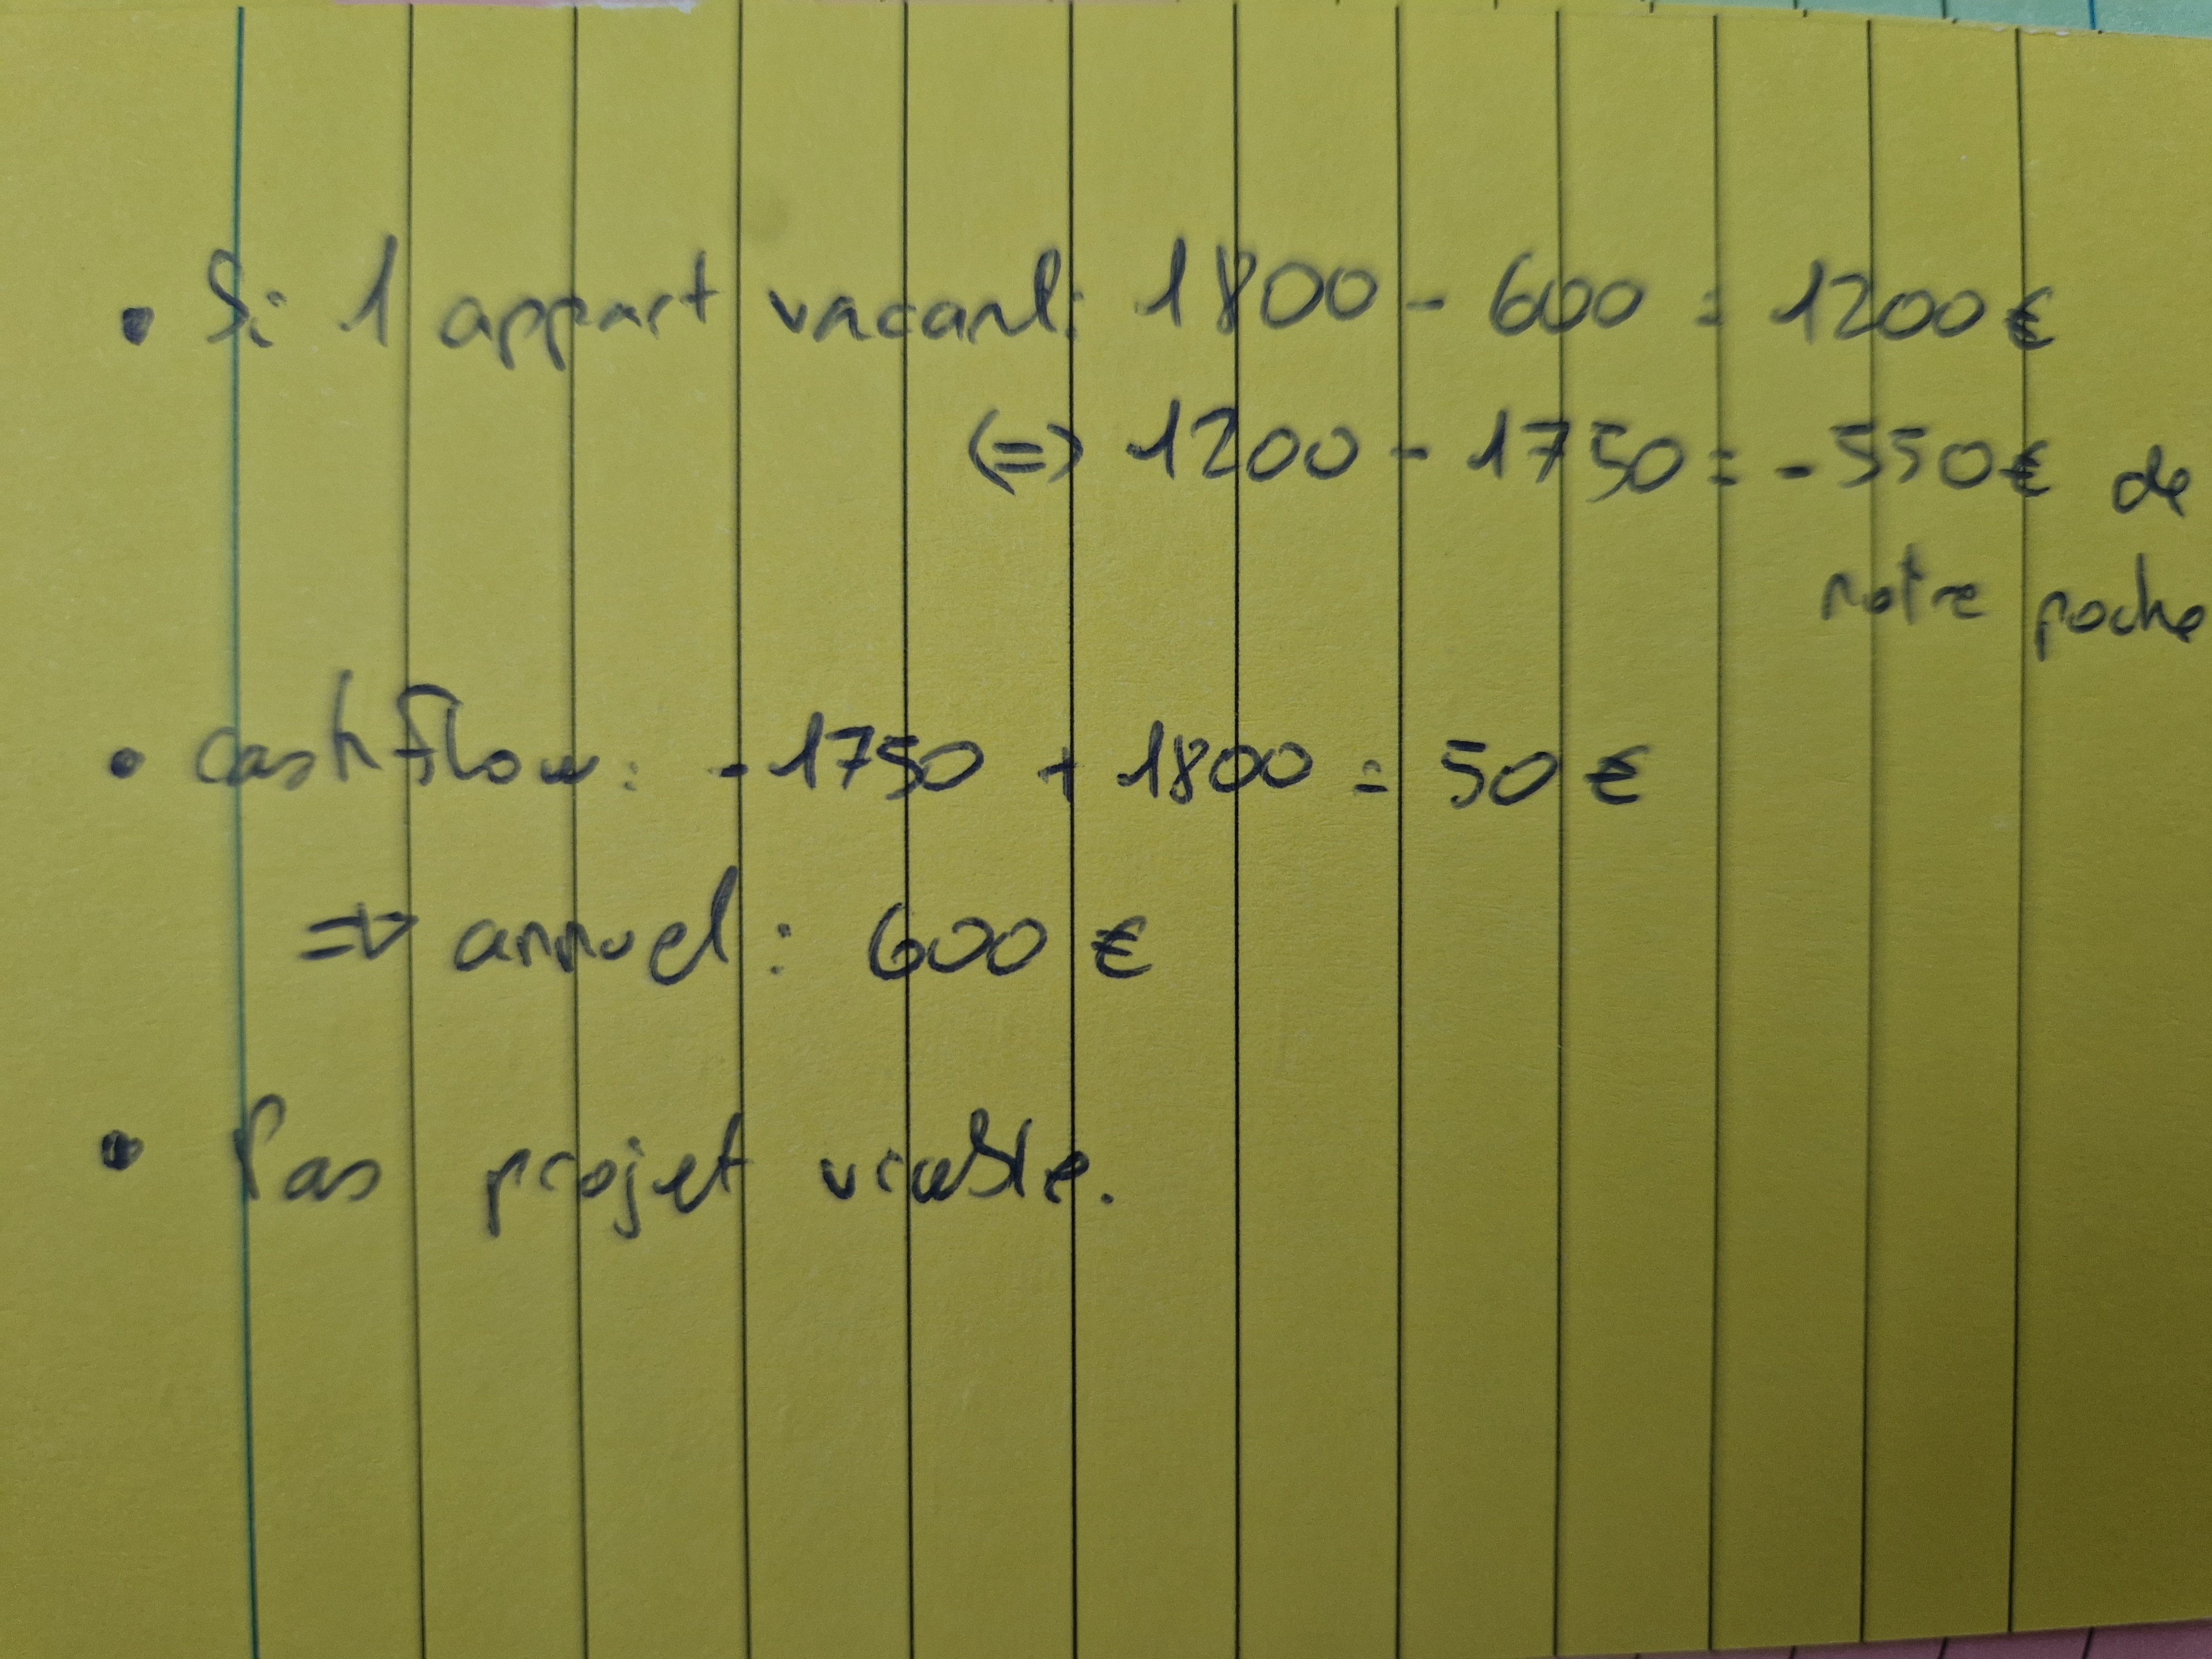 • Si 1 appart vacant: 1800 - 600 = 1200 €
(=> 1200 - 1750 = - 550 € de
notre poche
• cashflow: - 1750 + 1800 = 50 €
=> annuel : 600 €
• Pas projet viable.